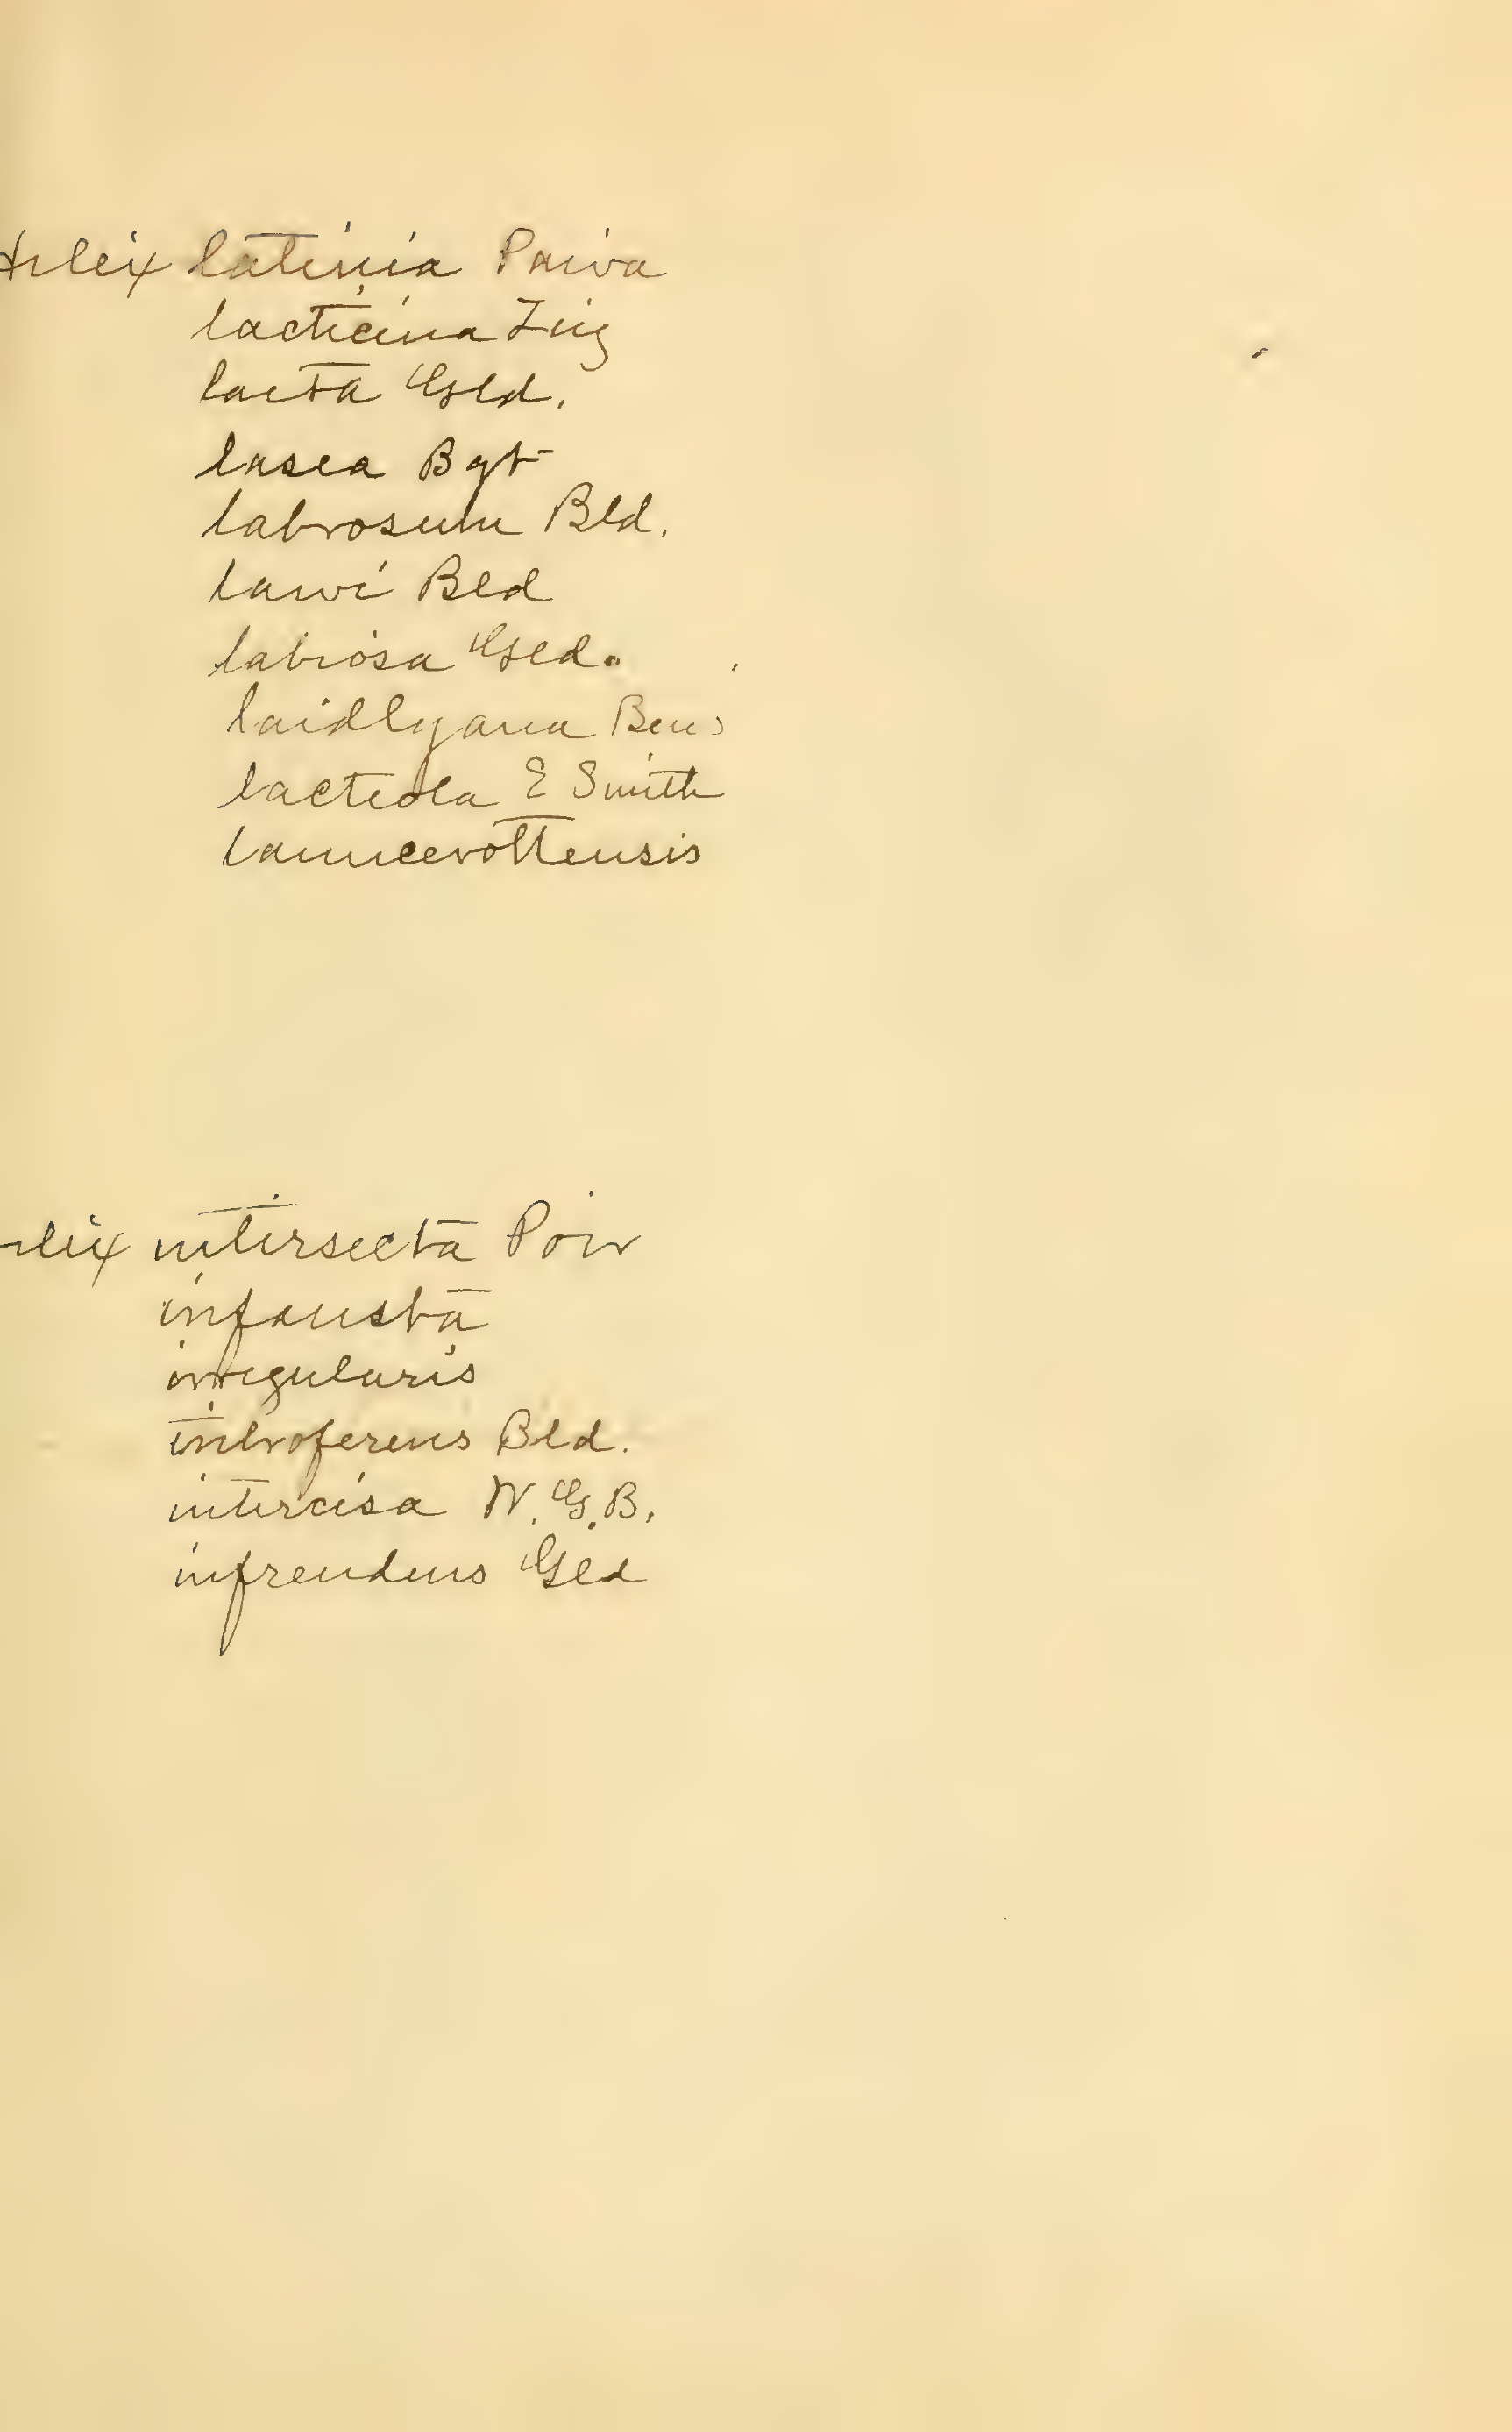 Helix latinia Paiva
lacticina Zieg
lacta Gld.
lasea Bgt
labrosum Bld.
lawi Bld
labiosa Gld.
laidlyana Bens
lacteola E Smith
lauucerottensis
Helix intersecta Poir
infausta
irregularis
introferens Bld.
intercisa W. G. B.
infrendens Gld